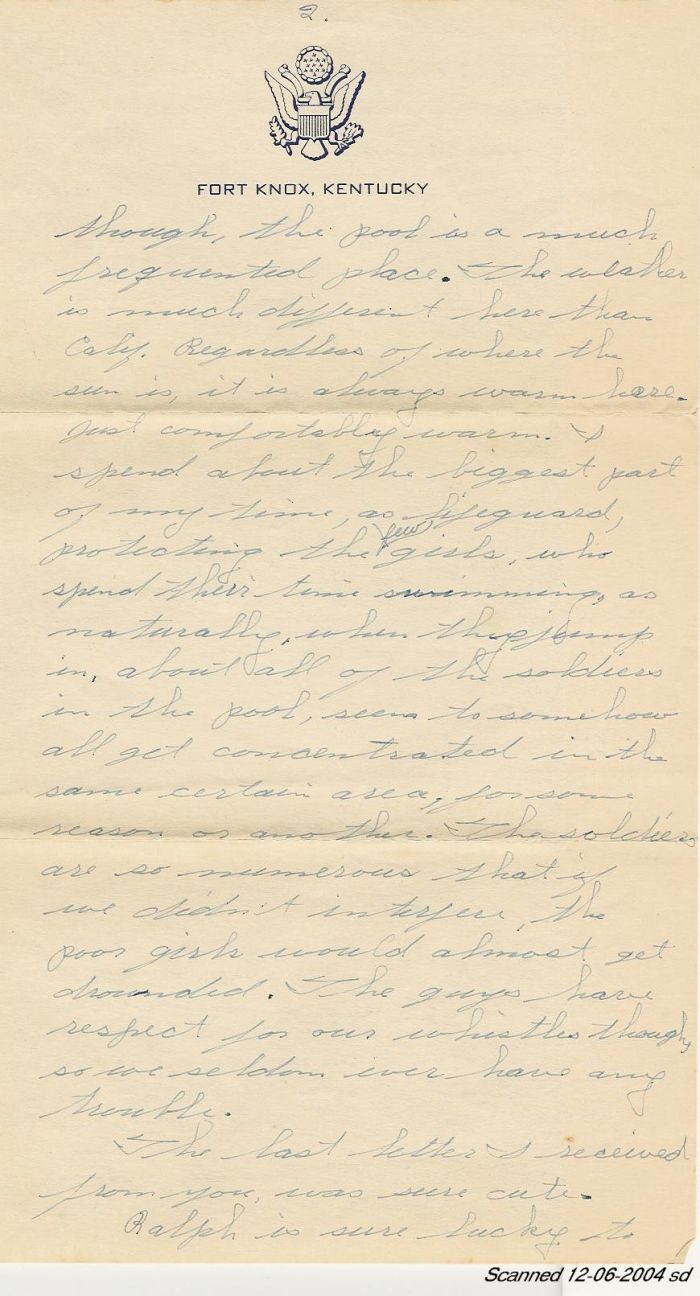 2.
FORT KNOX, KENTUCKY
though, the pool is a much
frequented place. The weather
is much different here than
Calif. Regardless of where the
sun is, it is always warm here.
Just comfortably warm. I
spend about the biggest part
of my time, as lifeguard,
protecting the few girls, who
spend their time swimming, as
naturally, when they jump
in, about all of the soldiers
in the pool, seem to somehow
all get concentrated in the
same certain area, for some
reason or another. The soldiers
are so numerous that if
we didn't interfere, the
poor girls would almost get
drownded. The guys have
respect for our whistles though,
so we seldom ever have any
trouble.
The last letter I received
from you, was sure cute.
Ralph is sure lucky to
Scanned 12-06-2004 sd